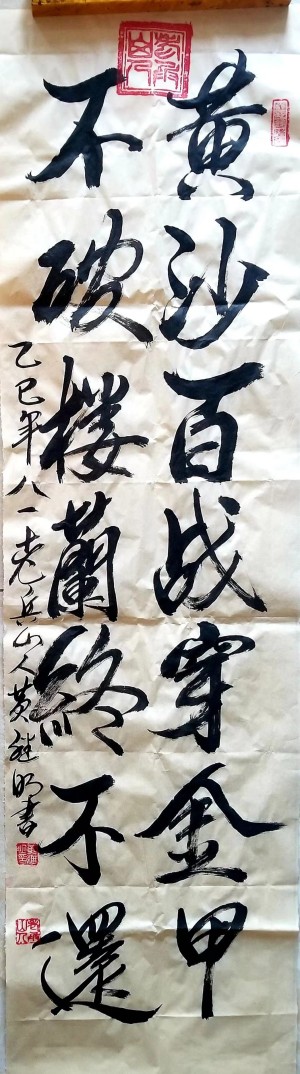 黄沙百战穿金甲
不破楼蘭终不還
乙巳年八一老兵山人黄继明书